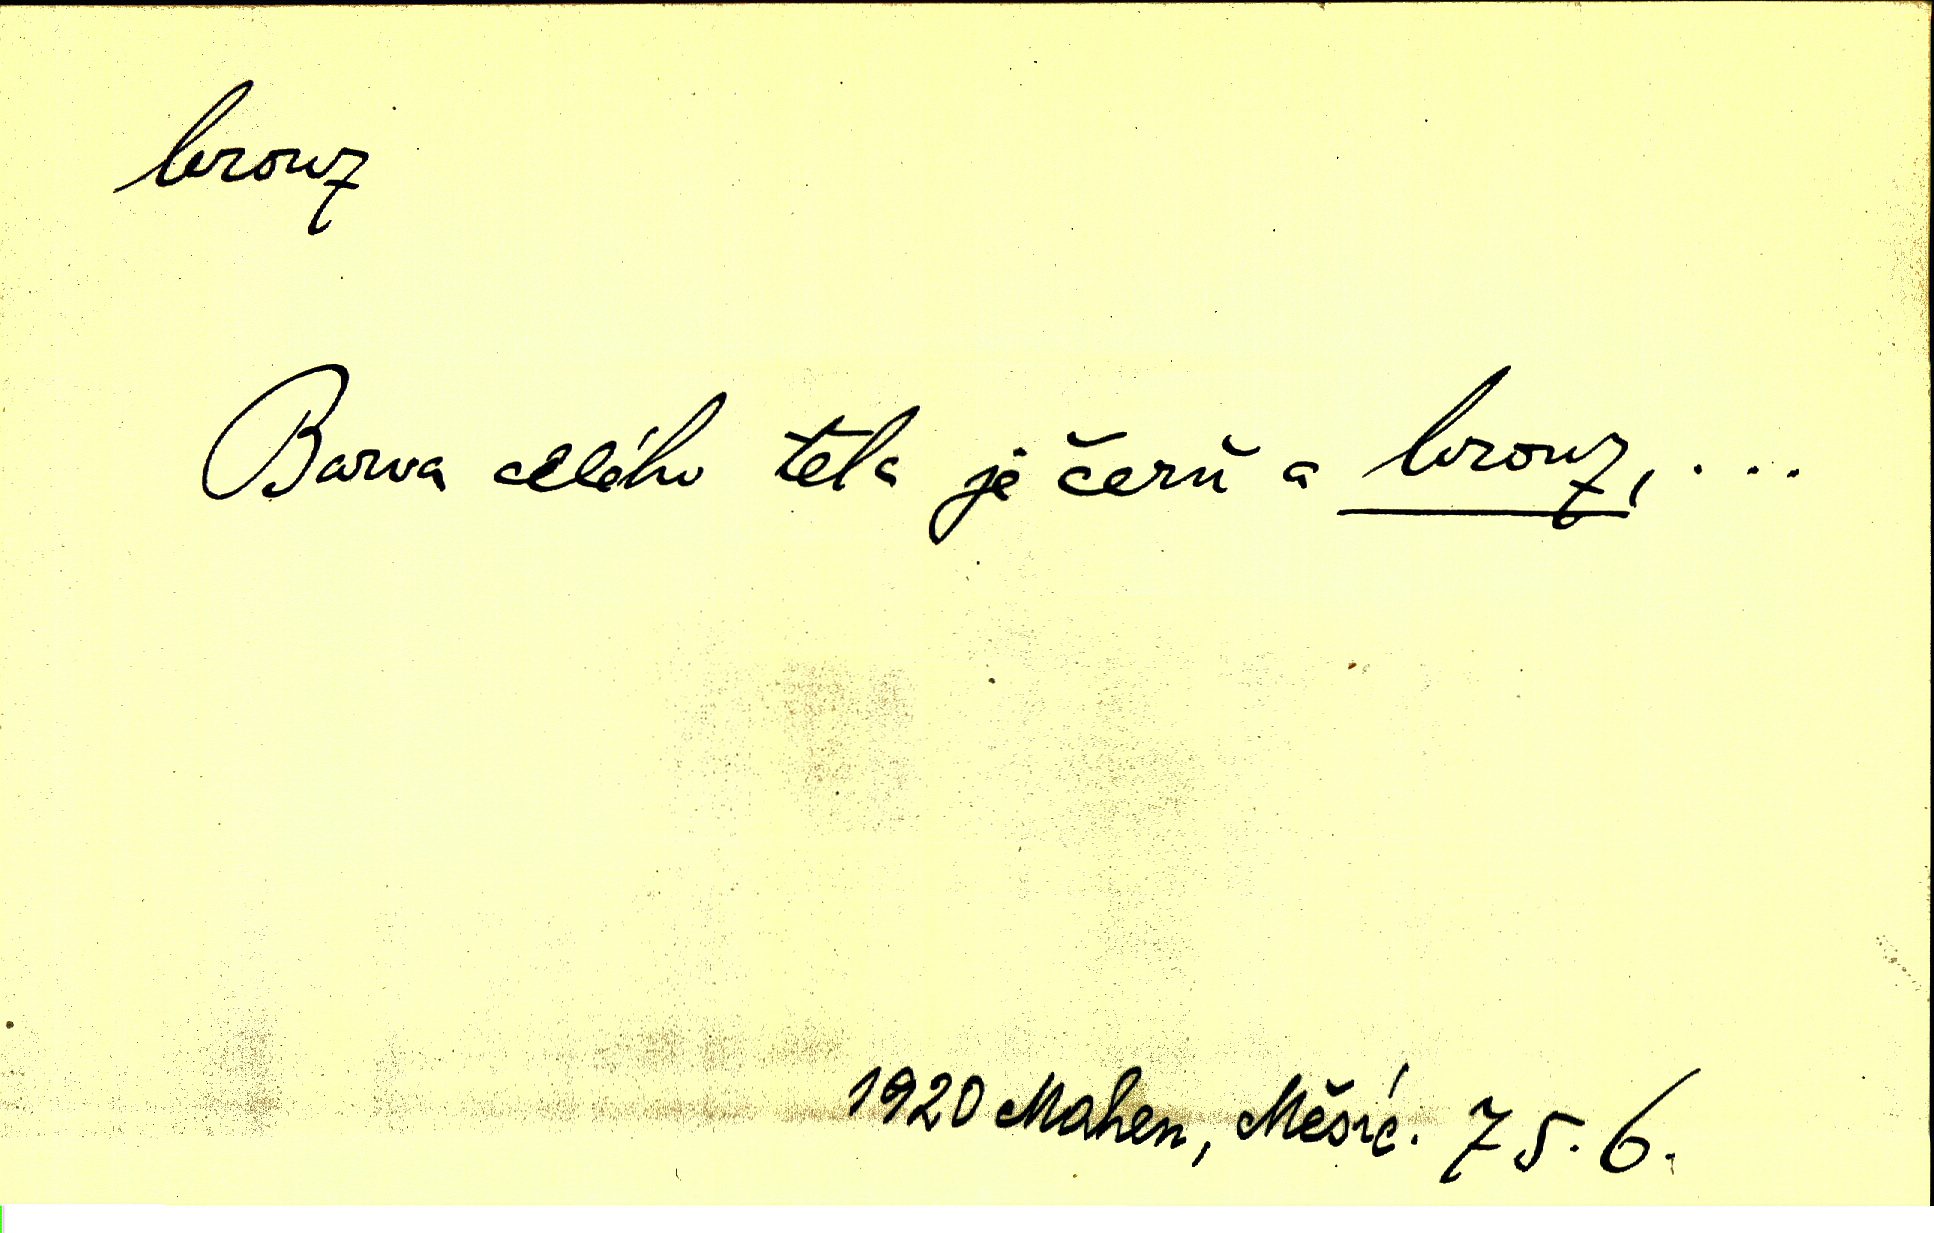 bronz
Barva celého těla je čerň a bronz, ...
1920 Mahen, Měsíc. 75. 6.